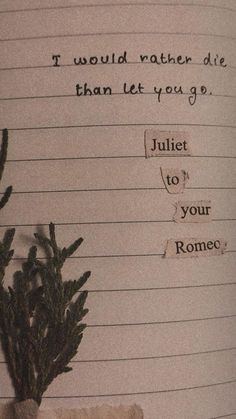 I would rather die
than let you go.
Juliet
to
your
Romeo